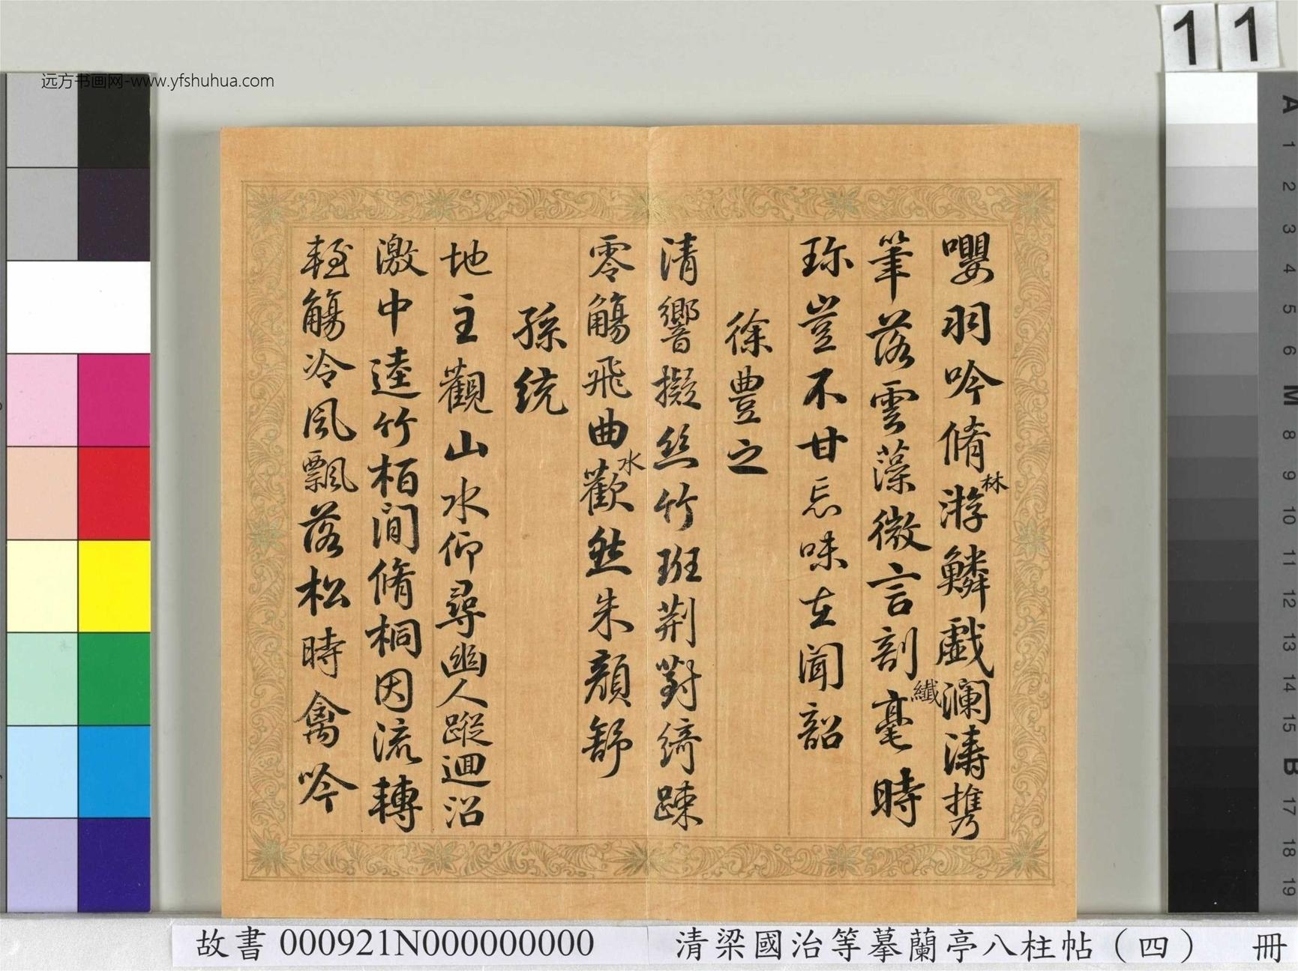 11
远方书画网-www.yfshuhua.com
嚶羽吟脩林游鱗戲瀾濤攜
筆落雲藻微言剖纖毫時
珎豈不甘忘味在聞韶
徐豐之
清響擬絲竹班荆對綺踈
零觴飛曲水歡然朱顏舒
孫統
地主觀山水仰尋幽人蹤迴沼
激中逵竹栢間脩桐因流轉
輊觴冷風飄落松時禽吟
A
1
2
3
4
5
6
M
8
9
10
11
12
13
14
15
B
17
18
19
故書 000921N000000000 清梁國治等摹蘭亭八柱帖（四） 冊